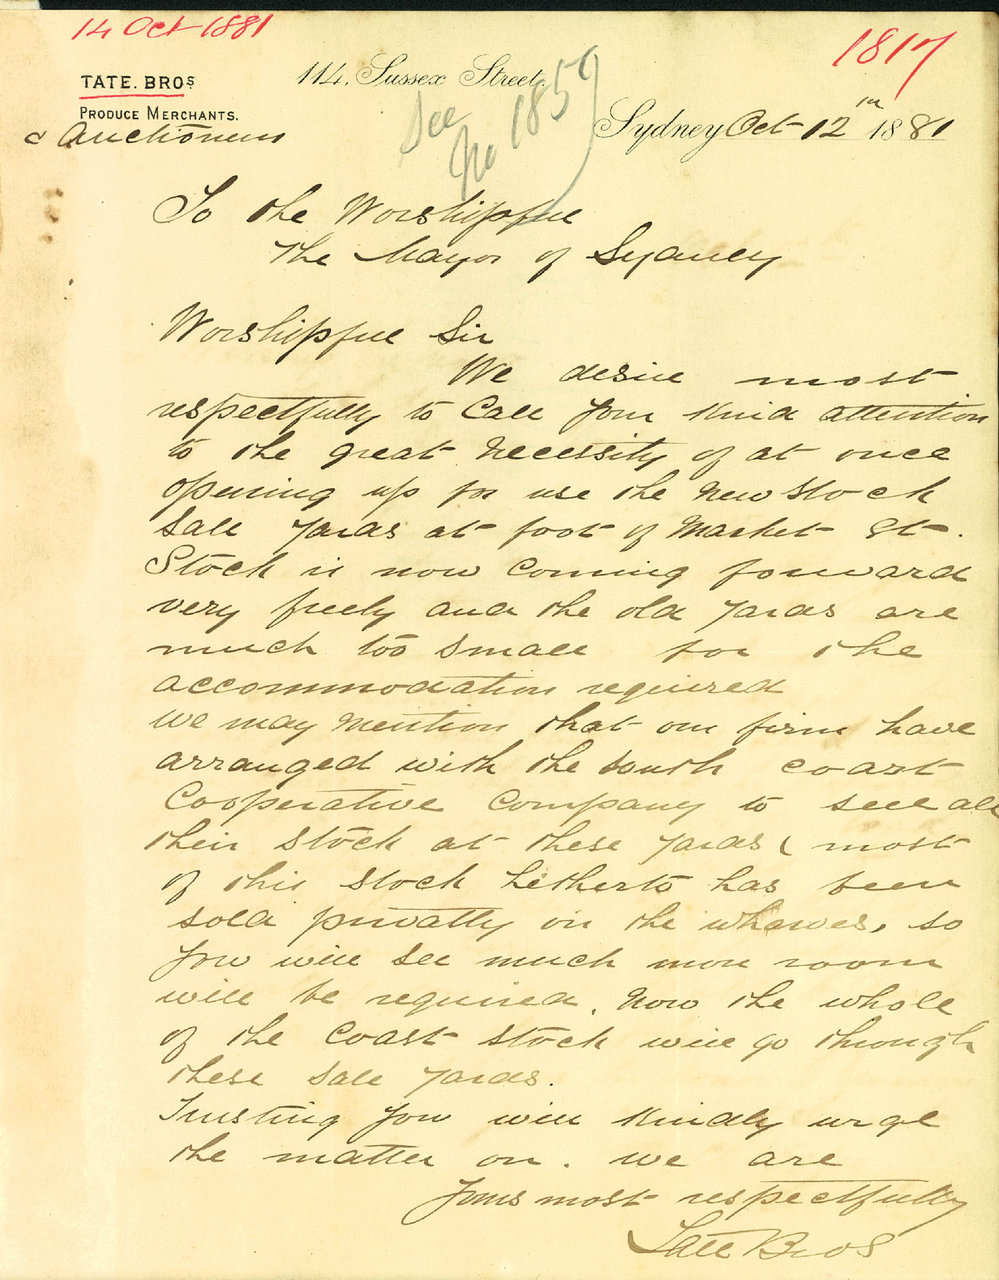 14 Oct 1881
1817
TATE. BROS
114, Sussex Street.
PRODUCE MERCHANTS.
& Auctioneers
See
No 1859
Sydney Oct 12th 1881
To the Worshipful
The Mayor of Sydney
Worshipful Sir
We desire most
respectfully to Call your kind attention
to the great Necessity of at once
opening up for use the New Stock
Sale Yards at foot of Market St.
Stock is now Coming forward
very freely and the old yards are
much too small for the
accommodation required
We may mention that our firm have
arranged with the South Coast
Cooperative Company to sell all
their stock at these yards (most
of this stock hitherto has been
sold privatly on the wharves, so
you will see much more room
will be required. Now the whole
of the Coast stock will go through
these sale yards.
Trusting you will kindly urge
the matter on. We are
Yours most respectfully
Tate Bros